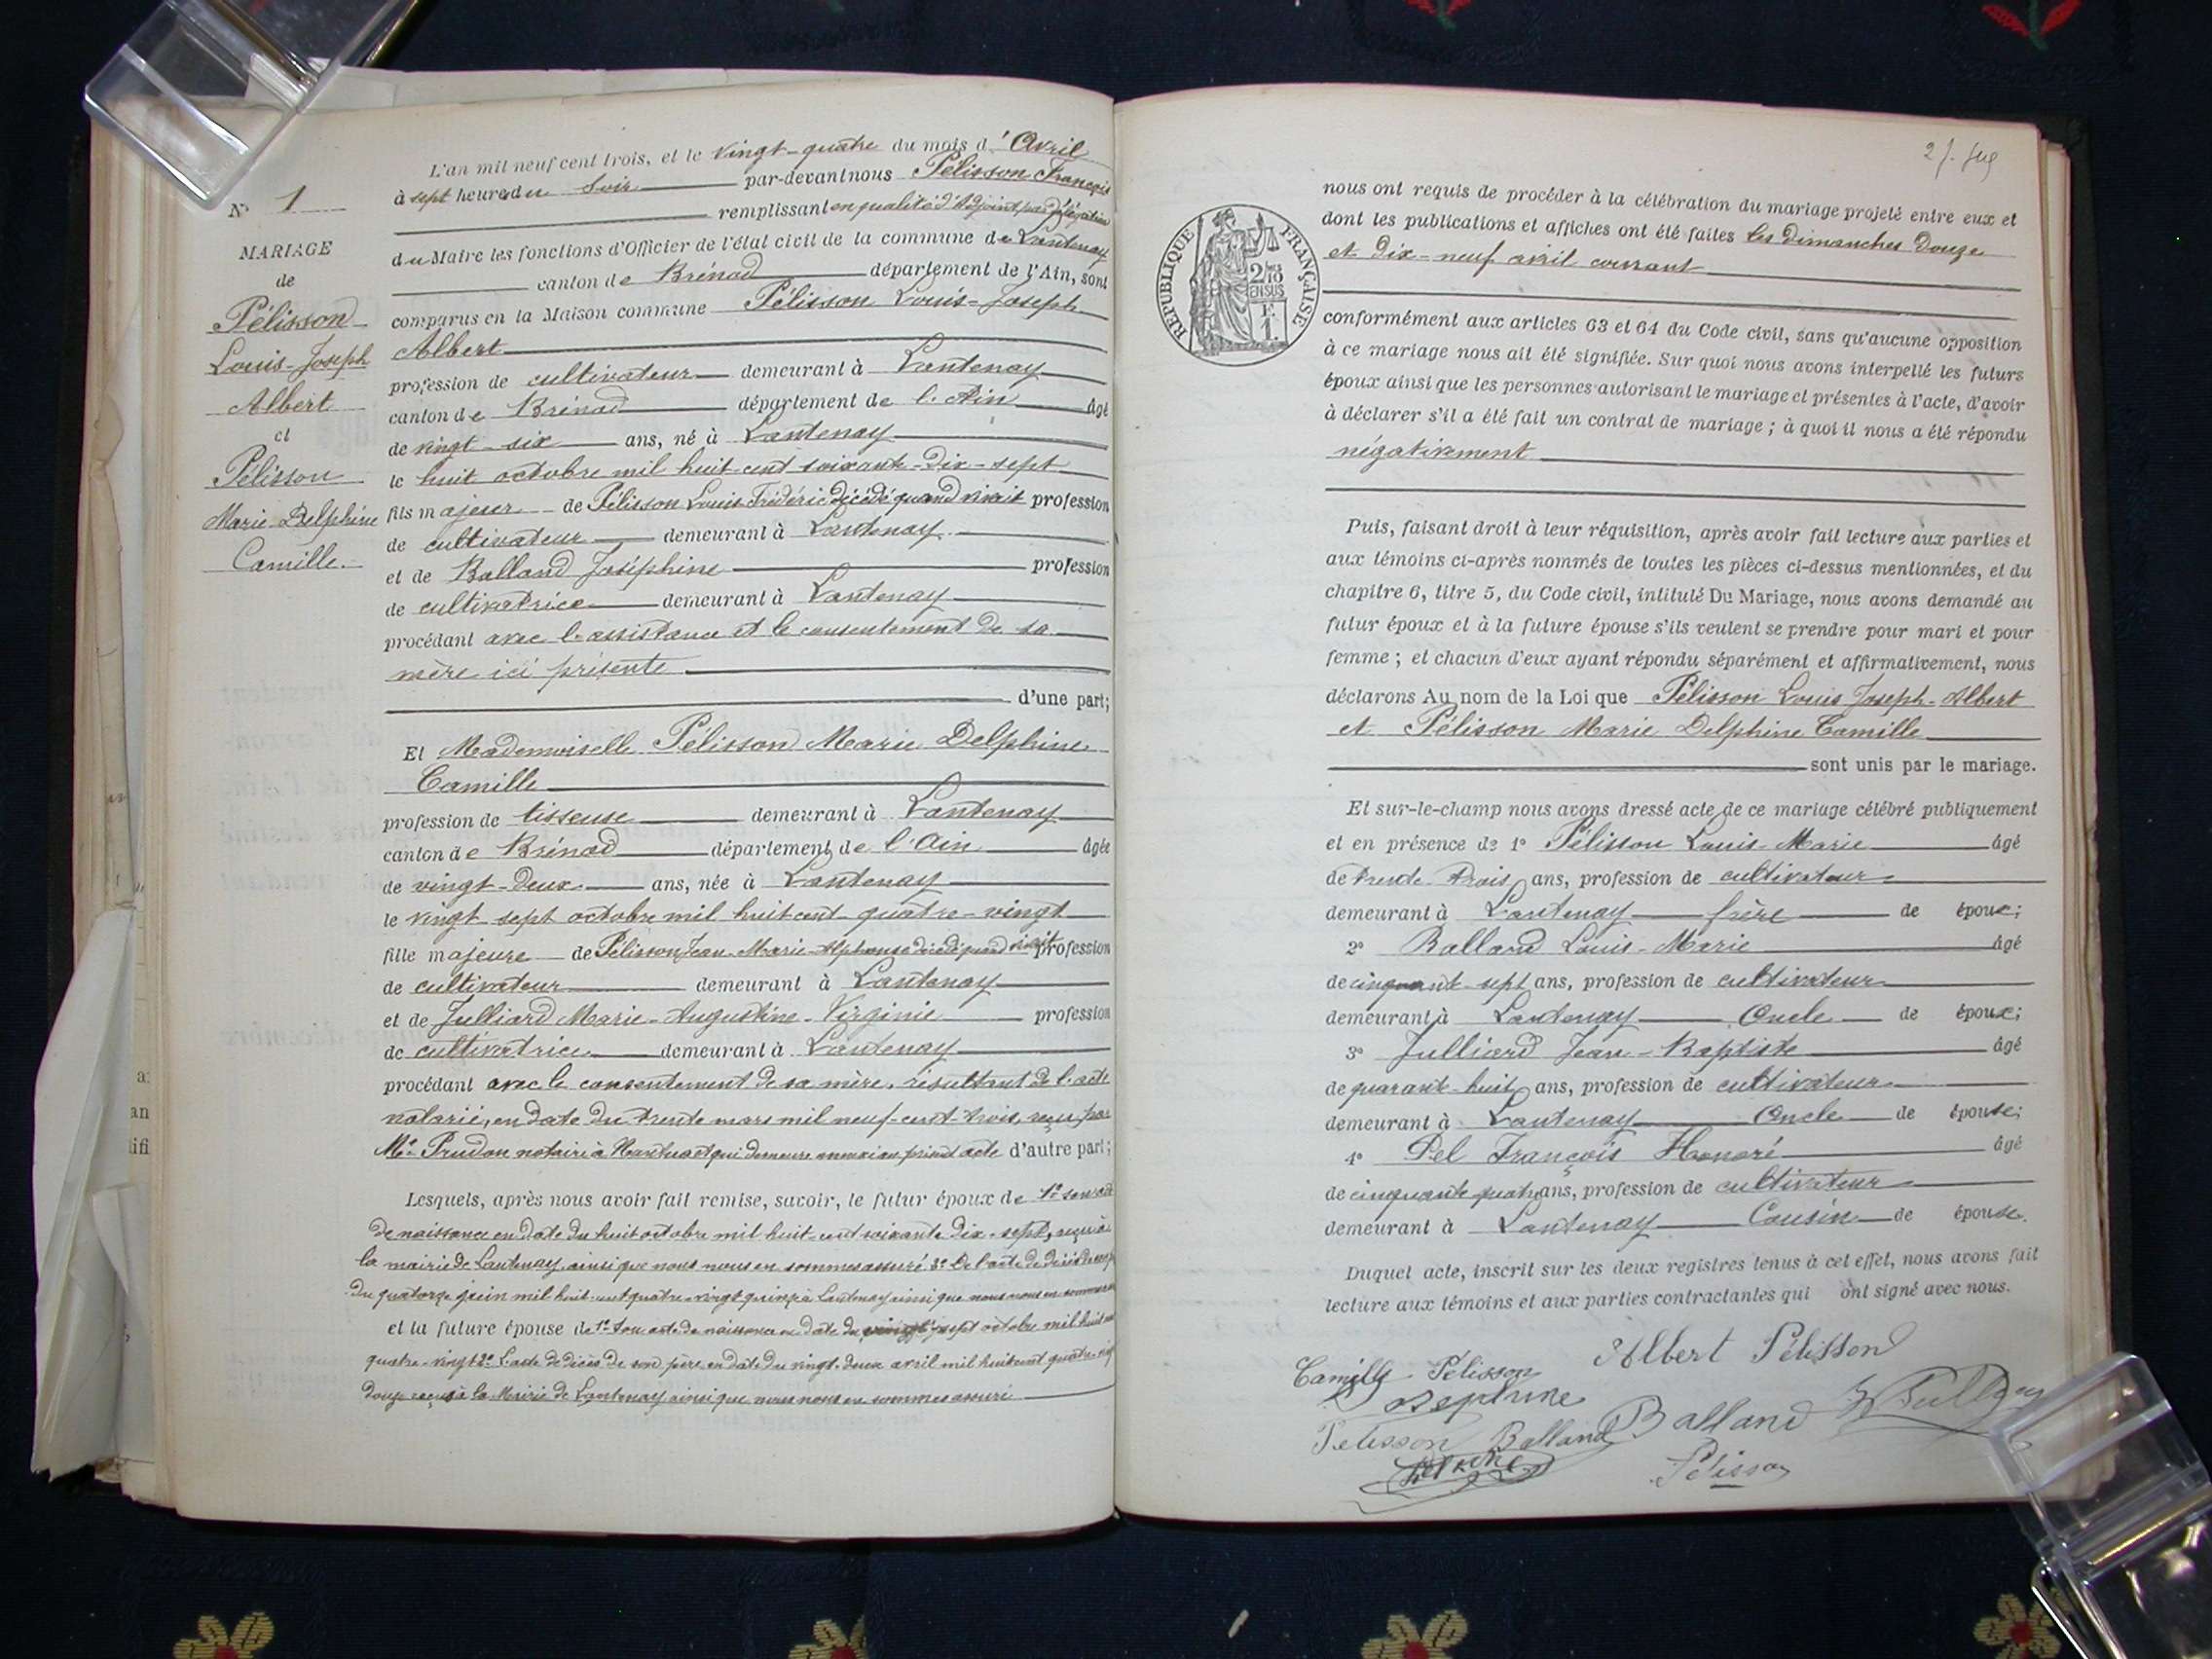 N° 1
MARIAGE
de
Pélisson
Louis-Joseph
Albert
et
Pélisson
Marie Delphine
Camille.
L'an mil neuf cent trois, et le vingt-quatre du mois d'Avril
à sept heures du soir par-devant nous Pélisson François
remplissant en qualité d'Adjoint par délégation
du Maire les fonctions d'Officier de l'état civil de la commune de Lantenay
canton de Brénod département de l'Ain, sont
comparus en la Maison commune Pélisson Louis-Joseph
Albert
profession de cultivateur demeurant à Lantenay
canton de Brénod département de l'Ain âgé
de vingt-six ans, né à Lantenay
le huit octobre mil huit cent soixante-dix-sept
fils majeur de Pélisson Louis Frédéric décédé quand vivait profession
de cultivateur demeurant à Lantenay
et de Balland Joséphine profession
de cultivatrice demeurant à Lantenay
procédant avec l'assistance et le consentement de sa
mère ici présente
d'une part;
Et Mademoiselle Pélisson Marie Delphine
Camille
profession de tisseuse demeurant à Lantenay
canton de Brénod département de l'Ain âgée
de vingt-deux ans, née à Lantenay
le vingt sept octobre mil huit cent quatre-vingt
fille majeure de Pélisson Jean-Marie-Alphonse décédé quand vivait profession
de cultivateur demeurant à Lantenay
et de Julliard Marie-Augustine-Virginie profession
de cultivatrice demeurant à Lantenay
procédant avec le consentement de sa mère, résultant de l'acte
notarié, en date du trente mars mil neuf-cent-trois, reçu par
Me Prudon notaire à Nantua et qui demeure annexé au présent acte d'autre part;
Lesquels, après nous avoir fait remise, savoir, le futur époux de 1° son acte
de naissance en date du huit octobre mil huit-cent soixante dix-sept, reçu à
la mairie de Lantenay, ainsi que nous nous en sommes assuré. 2° De l'acte de décès de son père
du quatorze juin mil huit-cent quatre-vingt quinze à Lantenay ainsi que nous nous en sommes assuré
et la future épouse de 1° Son acte de naissance en date du vingt sept octobre mil huit cent
quatre-vingt 2° L'acte de décès de son père en date du vingt-deux avril mil huit cent quatre-vingt
douze reçus à la Mairie de Lantenay ainsi que nous nous en sommes assuré
REPUBLIQUE FRANÇAISE
2/10
EN SUS
F.
1.
nous ont requis de procéder à la célébration du mariage projeté entre eux et
dont les publications et affiches ont été faites les dimanches douze
et dix-neuf avril courant
conformément aux articles 63 et 64 du Code civil, sans qu'aucune opposition
à ce mariage nous ait été signifiée. Sur quoi nous avons interpellé les futurs
époux ainsi que les personnes autorisant le mariage et présentes à l'acte, d'avoir
à déclarer s'il a été fait un contrat de mariage ; à quoi il nous a été répondu
négativement
Puis, faisant droit à leur réquisition, après avoir fait lecture aux parties et
aux témoins ci-après nommés de toutes les pièces ci-dessus mentionnées, et du
chapitre 6, titre 5, du Code civil, intitulé Du Mariage, nous avons demandé au
futur époux et à la future épouse s'ils veulent se prendre pour mari et pour
femme ; et chacun d'eux ayant répondu séparément et affirmativement, nous
déclarons Au nom de la Loi que Pélisson Louis Joseph-Albert
et Pélisson Marie Delphine Camille
sont unis par le mariage.
Et sur-le-champ nous avons dressé acte de ce mariage célébré publiquement
et en présence de 1° Pélisson Louis Marie âgé
de trente-trois ans, profession de cultivateur
demeurant à Lantenay frère de époux;
2° Balland Louis-Marie âgé
de cinquante-sept ans, profession de cultivateur
demeurant à Lantenay Oncle de époux;
3° Julliard Jean-Baptiste âgé
de quarante-huit ans, profession de cultivateur
demeurant à Lantenay Oncle de épouse;
4° Pel François Honoré âgé
de cinquante quatre ans, profession de cultivateur
demeurant à Lantenay Cousin de épouse.
Duquel acte, inscrit sur les deux registres tenus à cet effet, nous avons fait
lecture aux témoins et aux parties contractantes qui ont signé avec nous.
Camille Pélisson Albert Pélisson
Josephine
Pélisson Balland Balland
Pélisson